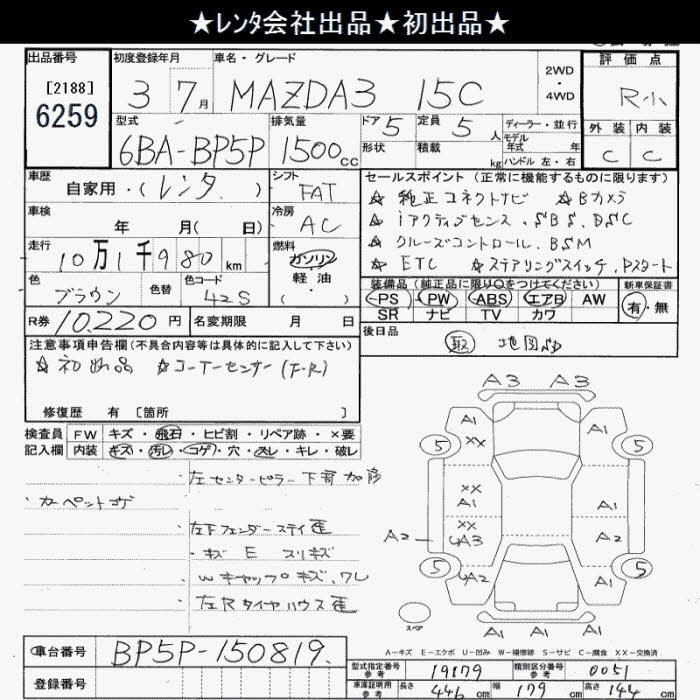 ★レンタ会社出品★初出品★
出品番号 初度登録年月 車名・グレード 2WD・4WD 評価点
[2188]
6259
3 7月 MAZDA3 15C R小
型式 排気量 ドア 5 定員 5人 ディーラー・並行 外装 内装
モデル年式 年
6BA-BP5P 1500cc 形状 積載 kg ハンドル 左・右 C C
車歴 シフト セールスポイント (正常に機能するものに限ります)
自家用・(レンタ) FAT ☆ 純正コネクトナビ ☆Bカメラ
車検 冷房 ☆ iアクティブセンス、SBS、DSC
年 月( 日) AC ☆ クルーズコントロール、BSM
走行 燃料 ☆ ETC ☆ステアリングスイッチ、Pスタート
10万1千980km ガソリン 軽油・( )
色 色替 色コード 装備品 (純正品に限り○をつけてください) 新車保証書
ブラウン 42S PS PW ABS エアB AW 有・無
SR ナビ TV カワ
R券 10,220円 名変期限 月 日 後日品
取 地図SD
注意事項申告欄(不具合内容等は具体的に記入して下さい)
☆初出品 ☆コーナーセンサー(F・R)
修復歴 有 [箇所 ]
A3 A3
検査員 FW キズ・飛石・ヒビ割・リペア跡・×要
記入欄 内装 キズ・汚レ・コゲ・穴・スレ・キレ・破レ
A1 XX
5 5
・左センターピラー下部加修
・カーペットコゲ
XX A1 A1
・左Fフェンダーステイ歪
A2 XX UA3 A2
・キズ E スリキズ
5 UA2 A1 5
・Wキャップキズ、ワレ
・左Rタイヤハウス歪
スペア
A1 A1
A-キズ E-エクボ U-凹み W-補修跡 S-サビ C-腐食 XX-交換済
車台番号 BP5P-150819
型式指定番号 参考 19179 類別区分番号 参考 0051
登録番号
車庫証明用 参考 長さ 446cm 幅 179cm 高さ 144cm